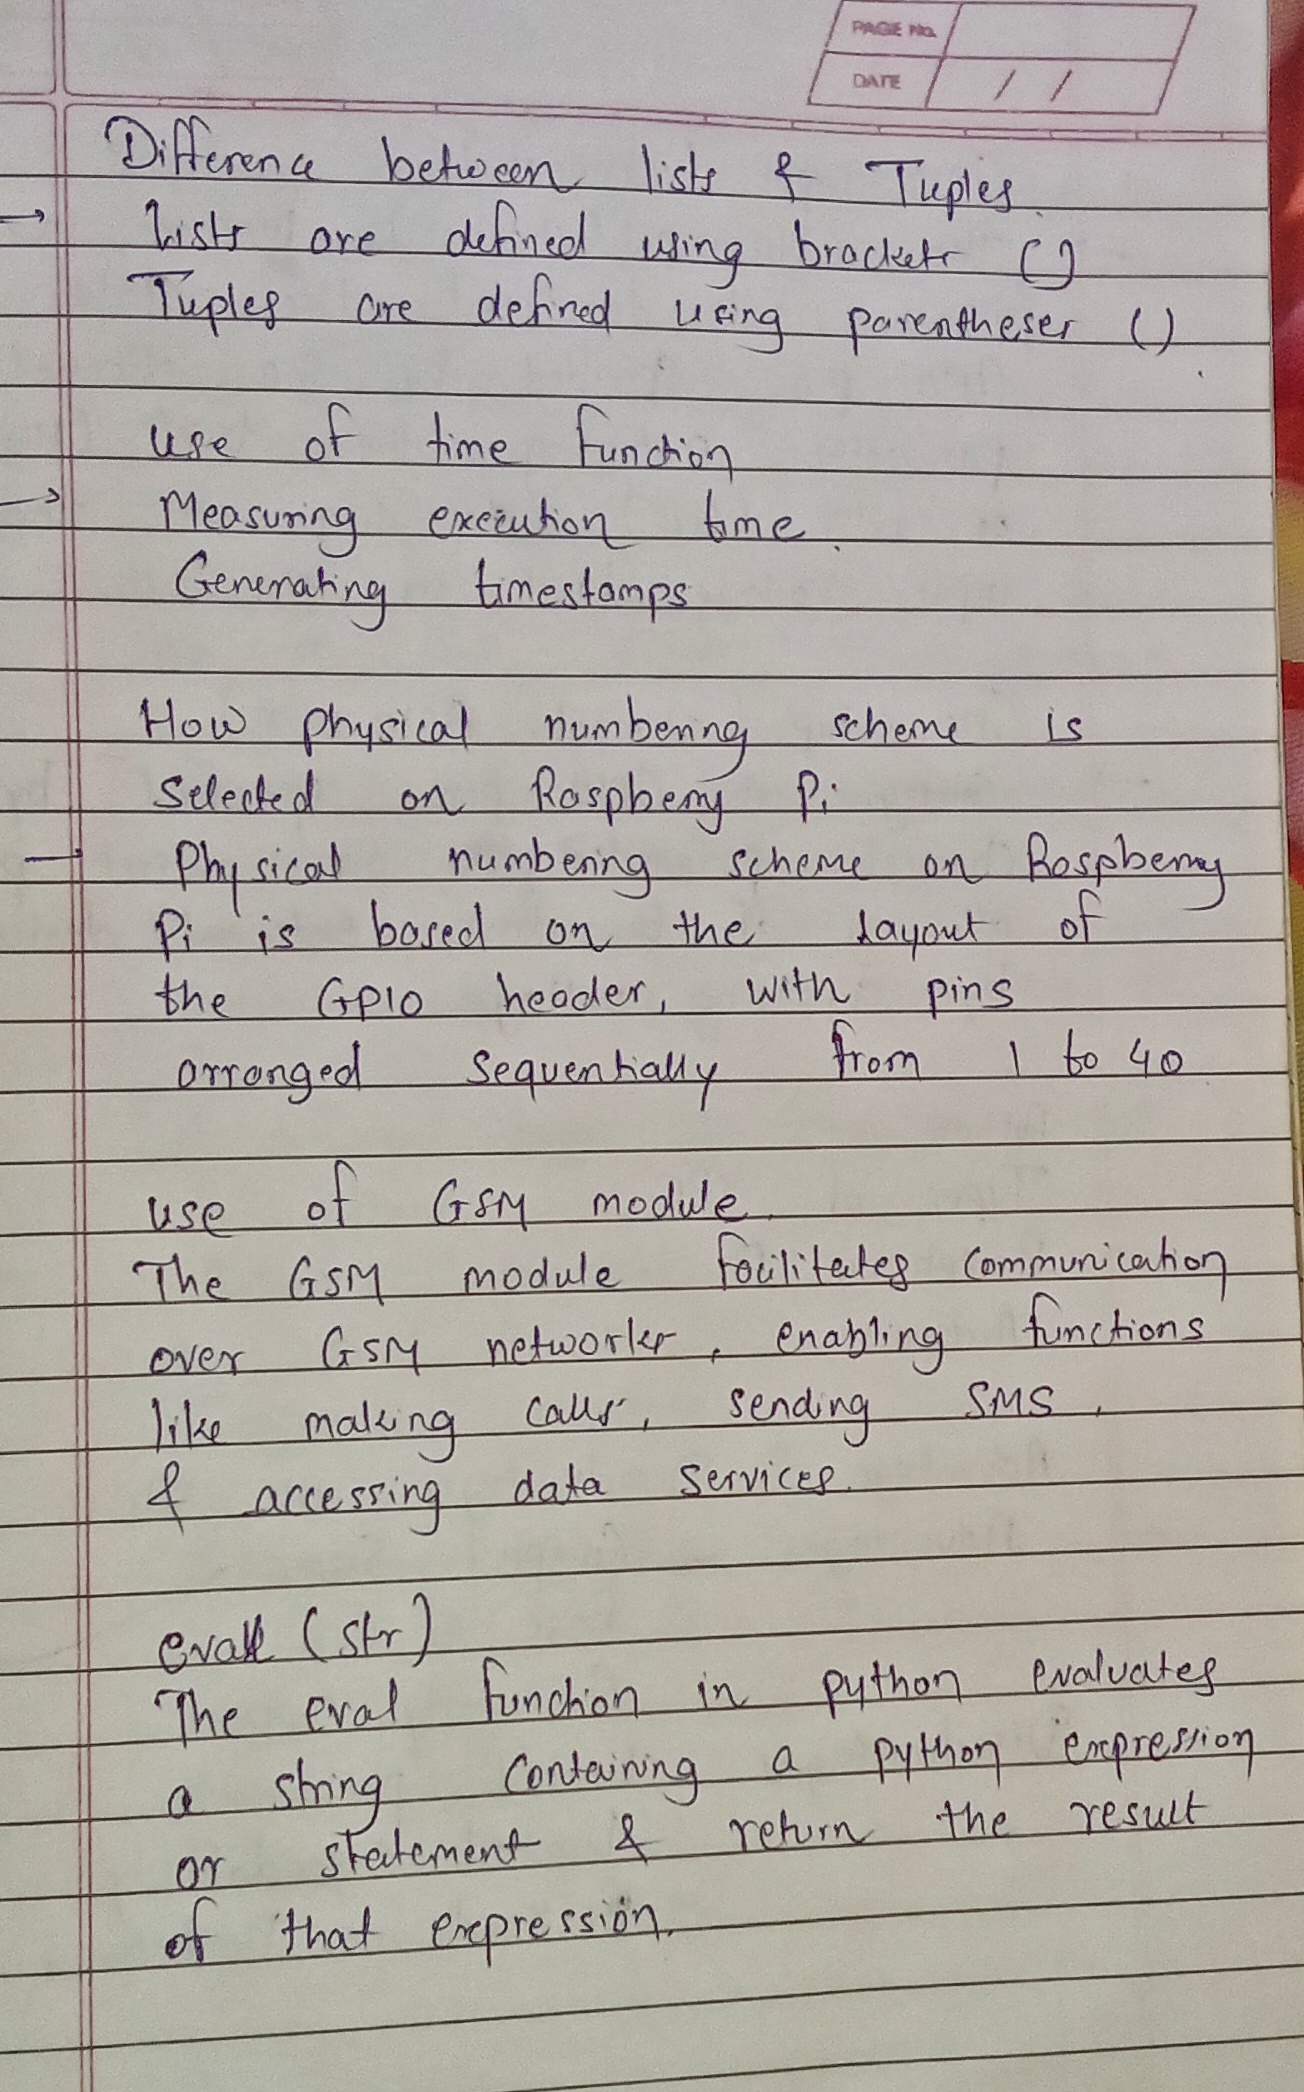 PAGE No.
DATE / /
Difference between lists & Tuples
→ Lists are defined using brackets []
Tuples are defined using parentheses ()
use of time function
→ Measuring execution time.
Generating timestamps
How physical numbering scheme is
selected on Raspberry Pi
→ Physical numbering scheme on Raspberry
Pi is based on the layout of
the GPIO header, with pins
arranged sequentially from 1 to 40
use of GSM module.
The GSM module facilitates communication
over GSM networks, enabling functions
like making calls, sending SMS,
& accessing data services.
eval (str)
The eval function in python evaluates
a string containing a python expression
or statement & return the result
of that expression.